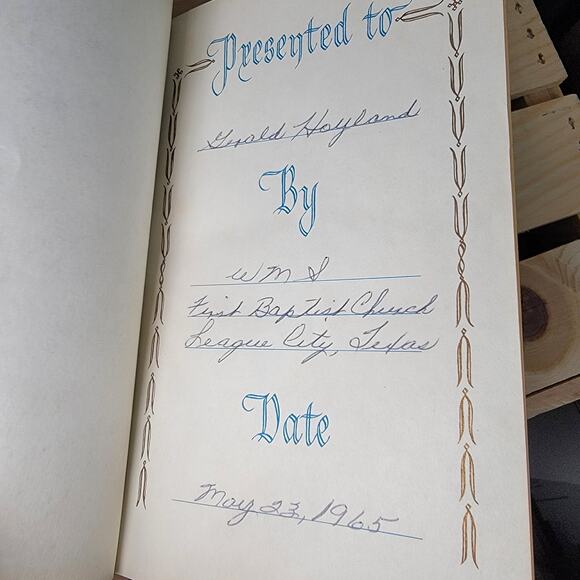 Presented to
Gerald Hoyland
By
W M S
First Baptist Church
League City, Texas
Date
May 23, 1965